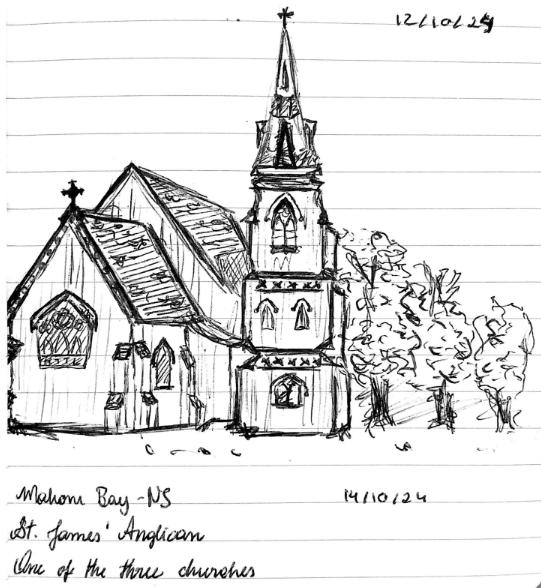 12/10/24
Mahone Bay - NS
14/10/24
St. James' Anglican
One of the three churches